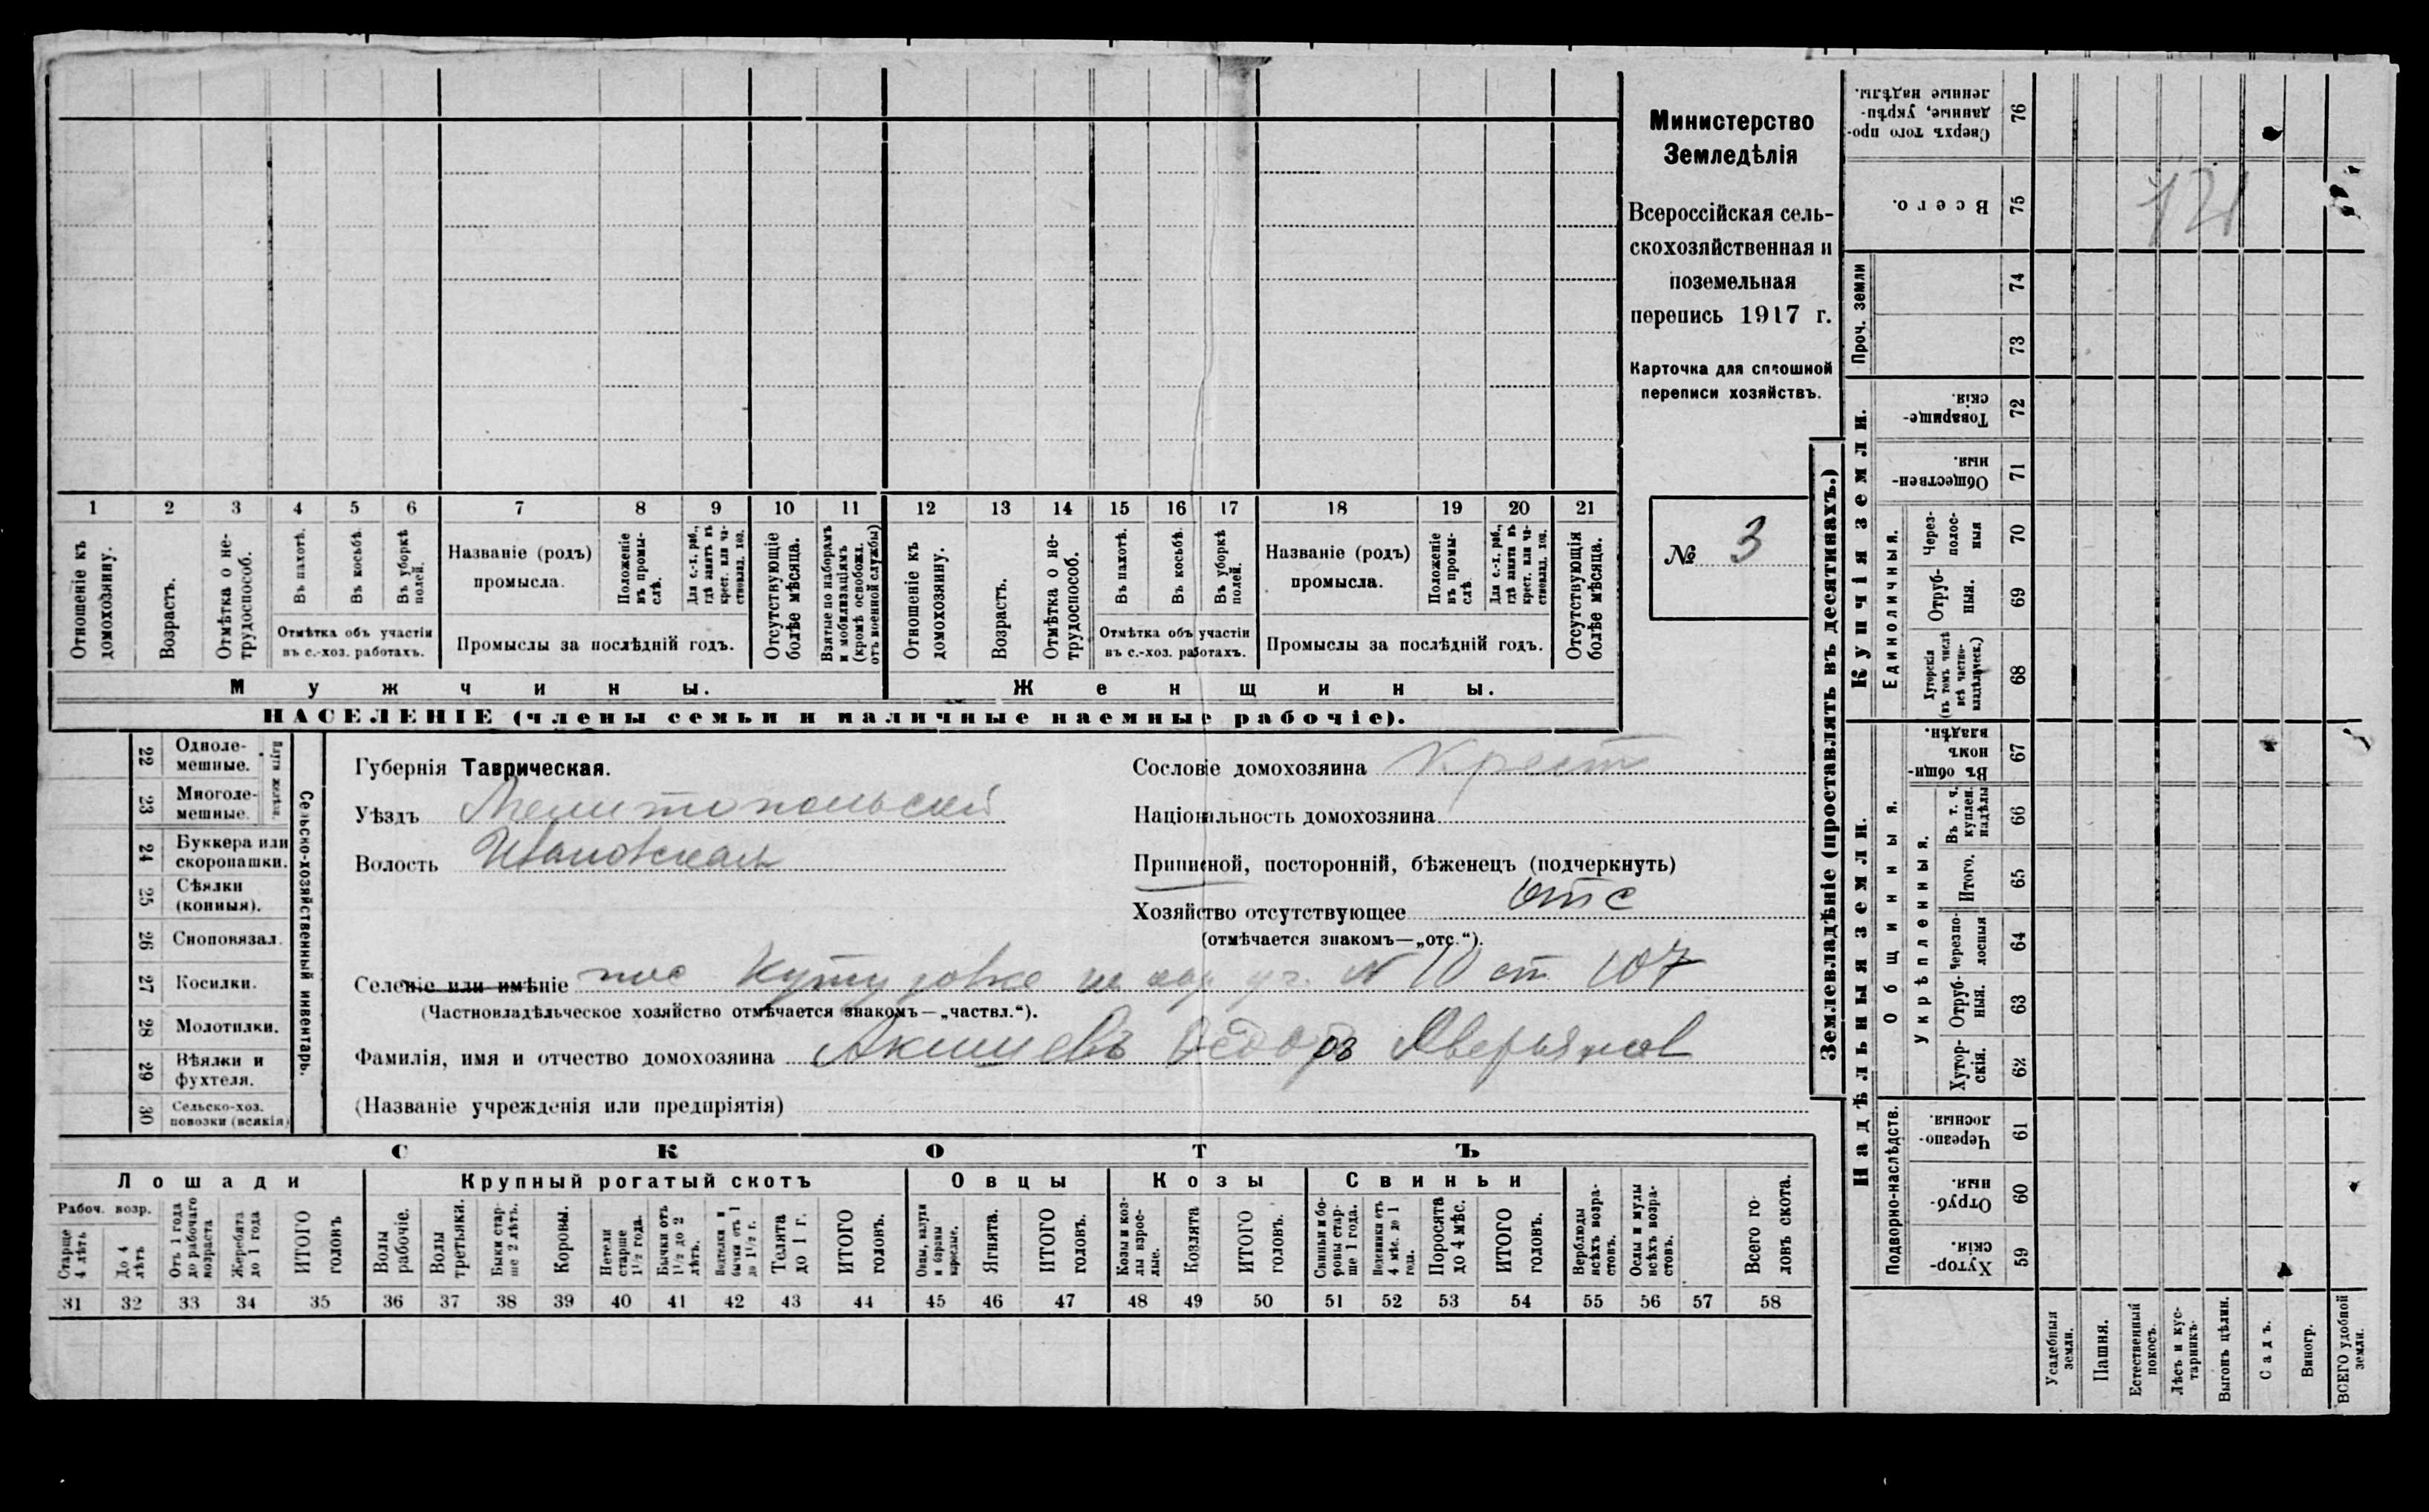 Министерство
Земледѣлія
Всероссійская сель-
скохозяйственная и
поземельная
перепись 1917 г.
Карточка для сплошной
переписи хозяйствъ.
№ 3
1 2 3 4 5 6 7 8 9 10 11 12 13 14 15 16 17 18 19 20 21
Отношеніе къ домохозяину.
Возрастъ.
Отмѣтка о не-трудоспособ.
Въ пахотѣ.
Въ косьбѣ.
Въ уборкѣ полей.
Отмѣтка объ участіи
въ с.-хоз. работахъ.
Названіе (родъ)
промысла.
Положеніе въ промы-слѣ.
Для с.-х. раб., гдѣ занятъ въ крест. или ча-стновлад. хоз.
Промыслы за послѣдній годъ.
Отсутствующіе болѣе мѣсяца.
Взятые по наборамъ и мобилизаціямъ (кромѣ освобожд. отъ военной службы)
Отношеніе къ домохозяину.
Возрастъ.
Отмѣтка о не-трудоспособ.
Въ пахотѣ.
Въ косьбѣ.
Въ уборкѣ полей.
Отмѣтка объ участіи
въ с.-хоз. работахъ.
Названіе (родъ)
промысла.
Положеніе въ промы-слѣ.
Для с.-х. раб., гдѣ занята въ крест. или ча-стновлад. хоз.
Промыслы за послѣдній годъ.
Отсутствующія болѣе мѣсяца.
Мужчины. Женщины.
НАСЕЛЕНІЕ (члены семьи и наличные наемные рабочіе).
22 Одноле-мешные.
23 Многоле-мешные.
24 Буккера или скоропашки.
25 Сѣялки (конныя).
26 Сноповязал.
27 Косилки.
28 Молотилки.
29 Вѣялки и фухтеля.
30 Сельско-хоз. повозки (всякія)
Сельско-хозяйственный инвентарь.
Губернія Таврическая.
Уѣздъ Мелитопольскій
Волость Ивановская
Сословіе домохозяина Крест
Національность домохозяина
Приписной, посторонній, бѣженецъ (подчеркнуть)
Хозяйство отсутствующее отс
(отмѣчается знакомъ—„отс.“).
Селеніе или имѣніе пос № 10 от. 107
(Частновладѣльческое хозяйство отмѣчается знакомъ—„частвл.“).
Фамилія, имя и отчество домохозяина Акишевъ Федоръ Аверьянов
(Названіе учрежденія или предпріятія)
СКОТЪ
Лошади Крупный рогатый скотъ Овцы Козы Свиньи
Рабоч. возр.
Старше 4 лѣтъ
До 4 лѣтъ
Отъ 1 года до рабочаго возраста
Жеребята до 1 года
ИТОГО головъ
Волы рабочіе.
Волы третьяки.
Быки стар-ше 2 лѣтъ.
Коровы.
Нетели старше 1½ года.
Бычки отъ 1½ до 2 лѣтъ.
Телята до 1 г.
ИТОГО головъ.
Ягнята.
ИТОГО головъ.
Козы и коз-лы взрос-лые.
Козлята
ИТОГО головъ.
Свиньи и бо-ровы стар-ше 1 года.
Поросята до 4 мѣс.
ИТОГО головъ.
Верблюды всѣхъ возра-стовъ.
Ослы и мулы всѣхъ возра-стовъ.
Всего го-ловъ скота.
31 32 33 34 35 36 37 38 39 40 41 42 43 44 45 46 47 48 49 50 51 52 53 54 55 56 57 58
Землевладѣніе (проставлять въ десятинахъ.)
Надѣльныя земли. Купчія земли. Проч. земли
Подворно-наслѣдств.
Общинныя.
Укрѣпленныя.
Единоличныя.
Сверхъ того про-данные, укрѣп-ленные надѣлы. 76
Всего. 75
121
74
73
Товарище-скія. 72
Обществен-ныя. 71
Через-полос-ныя 70
Отруб-ныя. 69
Хуторскія (въ томъ числѣ всѣ частно-владѣльческ.) 68
Въ общин-номъ владѣн. 67
Въ т. ч. куплен. надѣлы 66
Итого. 65
Черезпо-лосныя 64
Отруб-ныя. 63
Хутор-скія. 62
Черезпо-лосныя. 61
Отруб-ныя. 60
Хутор-скія. 59
Усадебныя земли.
Пашня.
Естественный покосъ.
Лѣсъ и кус-тарникъ.
Выгонъ цѣлин.
Садъ.
Виногр.
ВСЕГО удобной земли.